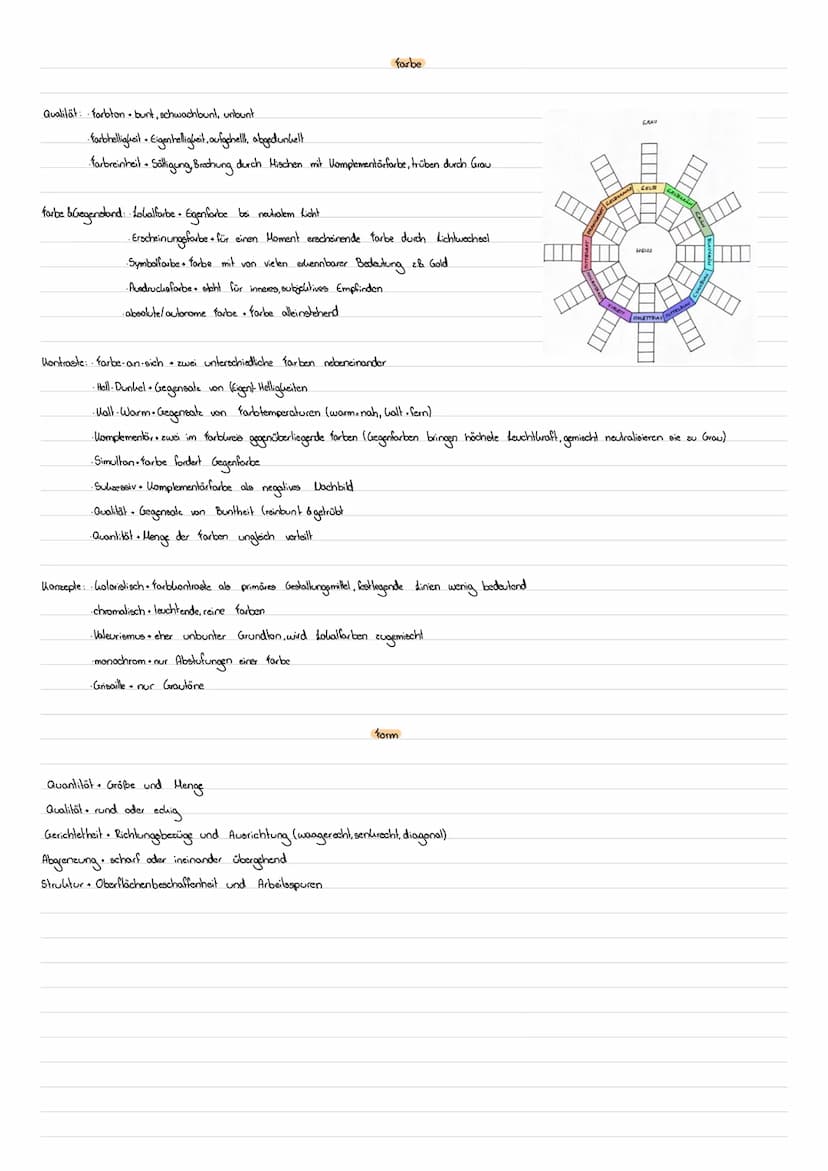 Farbe
Qualität: · Farbton → bunt, schwachbunt, unbunt
· Farbhelligkeit → Eigenhelligkeit, aufgehellt, abgedunkelt
· Farbreinheit → Sättigung, Brechung durch Mischen mit Komplementärfarbe, trüben durch Grau
Farbe & Gegenstand: · Lokalfarbe → Eigenfarbe bei neutralem Licht
· Erscheinungsfarbe → für einen Moment erscheinende Farbe durch Lichtwechsel
· Symbolfarbe → Farbe mit von vielen erkennbarer Bedeutung zB Gold
· Ausdrucksfarbe → steht für inneres, subjektives Empfinden
· absolute/autonome Farbe → Farbe alleinstehend
Kontraste: · Farbe-an-sich → zwei unterschiedliche Farben nebeneinander
· Hell-Dunkel → Gegensatz von (Eigen)-Helligkeiten
· Kalt-Warm → Gegensatz von Farbtemperaturen (warm=nah, kalt=fern)
· Komplementär → zwei im Farbkreis gegenüberliegende Farben (Gegenfarben bringen höchste Leuchtkraft, gemischt neutralisieren sie zu Grau)
· Simultan → Farbe fordert Gegenfarbe
· Sukzessiv → Komplementärfarbe als negatives Nachbild
· Qualität → Gegensatz von Buntheit (reinbunt & getrübt
· Quantität → Menge der Farben ungleich verteilt
Konzepte: · koloristisch → Farbkontraste als primäres Gestaltungsmittel, festlegende Linien wenig bedeutend
· chromatisch → leuchtende, reine Farben
· Valeurismus → eher unbunter Grundton, wird Lokalfarben zugemischt
· monochrom → nur Abstufungen einer Farbe
· Grisaille → nur Grautöne
GRAU
GELB
GELBGRÜN
GRÜN
BLAUGRÜN
CYANBLAU
MITTELBLAU
VIOLETTBLAU
VIOLETT
PURPURROT
MITTELROT
ORANGEROT
GELBORANGE
WEISS
Form
Quantität → Größe und Menge
Qualität → rund oder eckig
Gerichtetheit → Richtungsbezüge und Ausrichtung (waagerecht, senkrecht, diagonal)
Abgrenzung → scharf oder ineinander übergehend
Struktur → Oberflächenbeschaffenheit und Arbeitsspuren